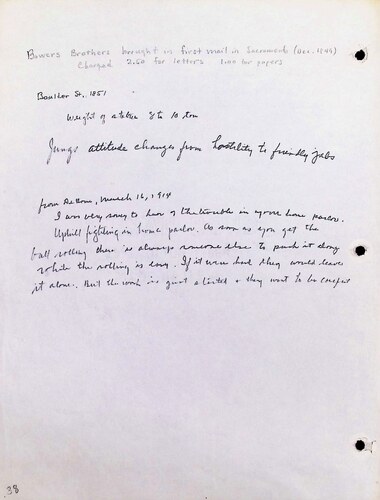 Bowers Brothers brought in first mail in Sacramento (Dec. 1849)
Charged 2.50 for letters 1.00 for papers
Boulder St, 1851
Weight of 8 to 10 ton
Jungs attitude changes from hostility to friendly jabs
from March 16, 1914
I am very sorry to hear of the trouble in your home
Uphill fighting in home. As soon as you get the
ball rolling there is always someone else to push it along
while the rolling is easy. If it were hard they would leave
it alone. But the work is started & they want to be
38